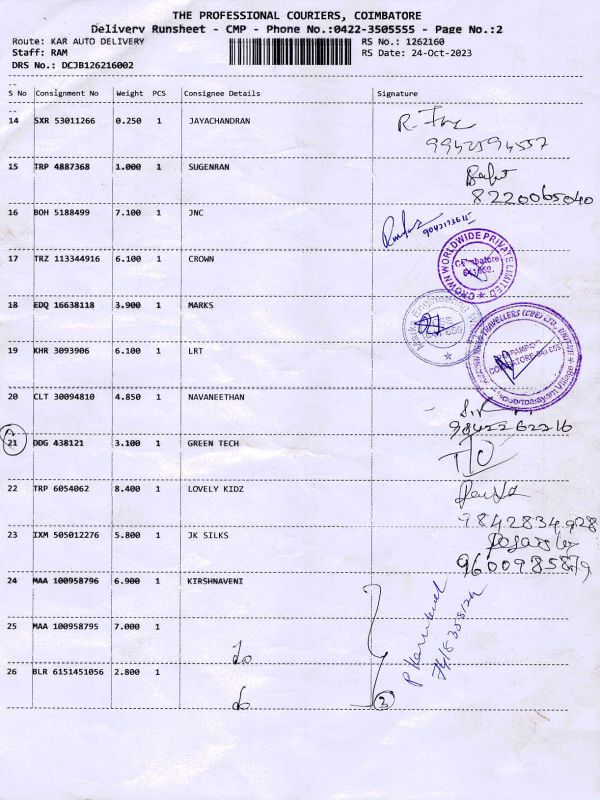 THE PROFESSIONAL COURIERS, COIMBATORE
Delivery Runsheet - CMP - Phone No.:0422-3505555 - Page No.:2
Route: KAR AUTO DELIVERY RS No.: 1262160
Staff: RAM RS Date: 24-Oct-2023
DRS No.: DCJB126216002
S No Consignment No Weight PCS Consignee Details Signature
14 SXR 53011266 0.250 1 JAYACHANDRAN
9942594557
15 TRP 4887368 1.000 1 SUGENRAN
8220065040
16 BOH 5188499 7.100 1 JNC
17 TRZ 113344916 6.100 1 CROWN
CROWN WORLDWIDE PRIVATE LIMITED
Coimbatore
18 EDQ 16638118 3.900 1 MARKS
19 KHR 3093906 6.100 1 LRT
20 CLT 30094810 4.850 1 NAVANEETHAN
9842262216
21 DDG 438121 3.100 1 GREEN TECH
22 TRP 6054062 8.400 1 LOVELY KIDZ
9842834928
23 IXM 505012276 5.800 1 JK SILKS
9600985879
24 MAA 100958796 6.900 1 KIRSHNAVENI
25 MAA 100958795 7.000 1
do
26 BLR 6151451056 2.800 1
do
3